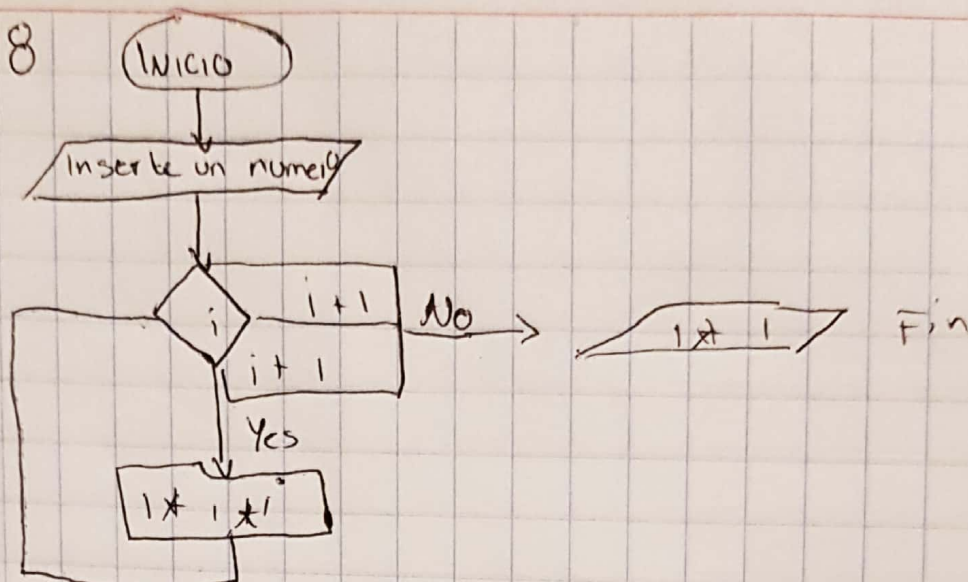 8
INICIO
Inserte un numero
i
i + 1
i + 1
No
1 * 1
Fin
Yes
1 * i * 1